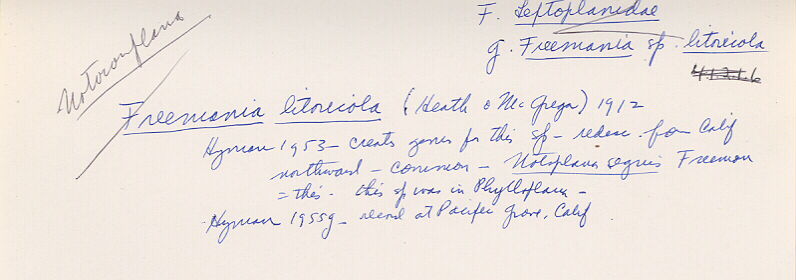 F. Leptoplanidae
g. Freemania sp. litoricola
41.2.1.6
Notocomplana
Freemania litoricola (Heath & McGregor) 1912
Hyman 1953 – creates genus for this sp – redesc. from Calif
northward – common – Notoplana segnis Freeman
= this. this sp was in Phylloplana –
Hyman 1955g – record at Pacific Grove, Calif